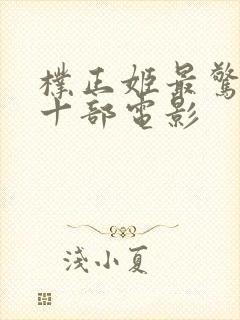 樸正姬最驚
十部電影
淺小夏